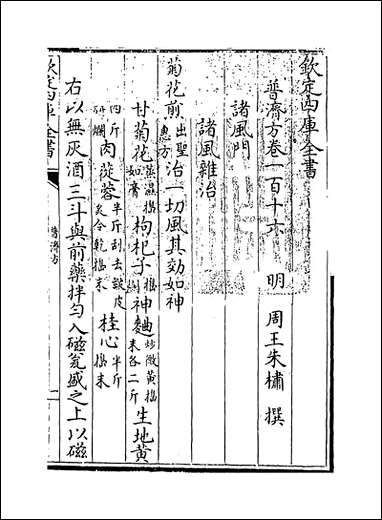 欽定四庫全書
普濟方卷一百十六
明 周王朱橚 撰
諸風門
諸風雜治
菊花煎出聖惠方治一切風其効如神
甘菊花蒸濕搗如膏枸杞子搗神麯炒微黄搗末各二斤生地黄
四斤研爛肉蓯蓉半斤刮去皴皮炙令乾搗末桂心半斤搗末
右以無灰酒三斗與前藥拌匀入磁瓮盛之上以磁
欽定四庫全書
普濟方